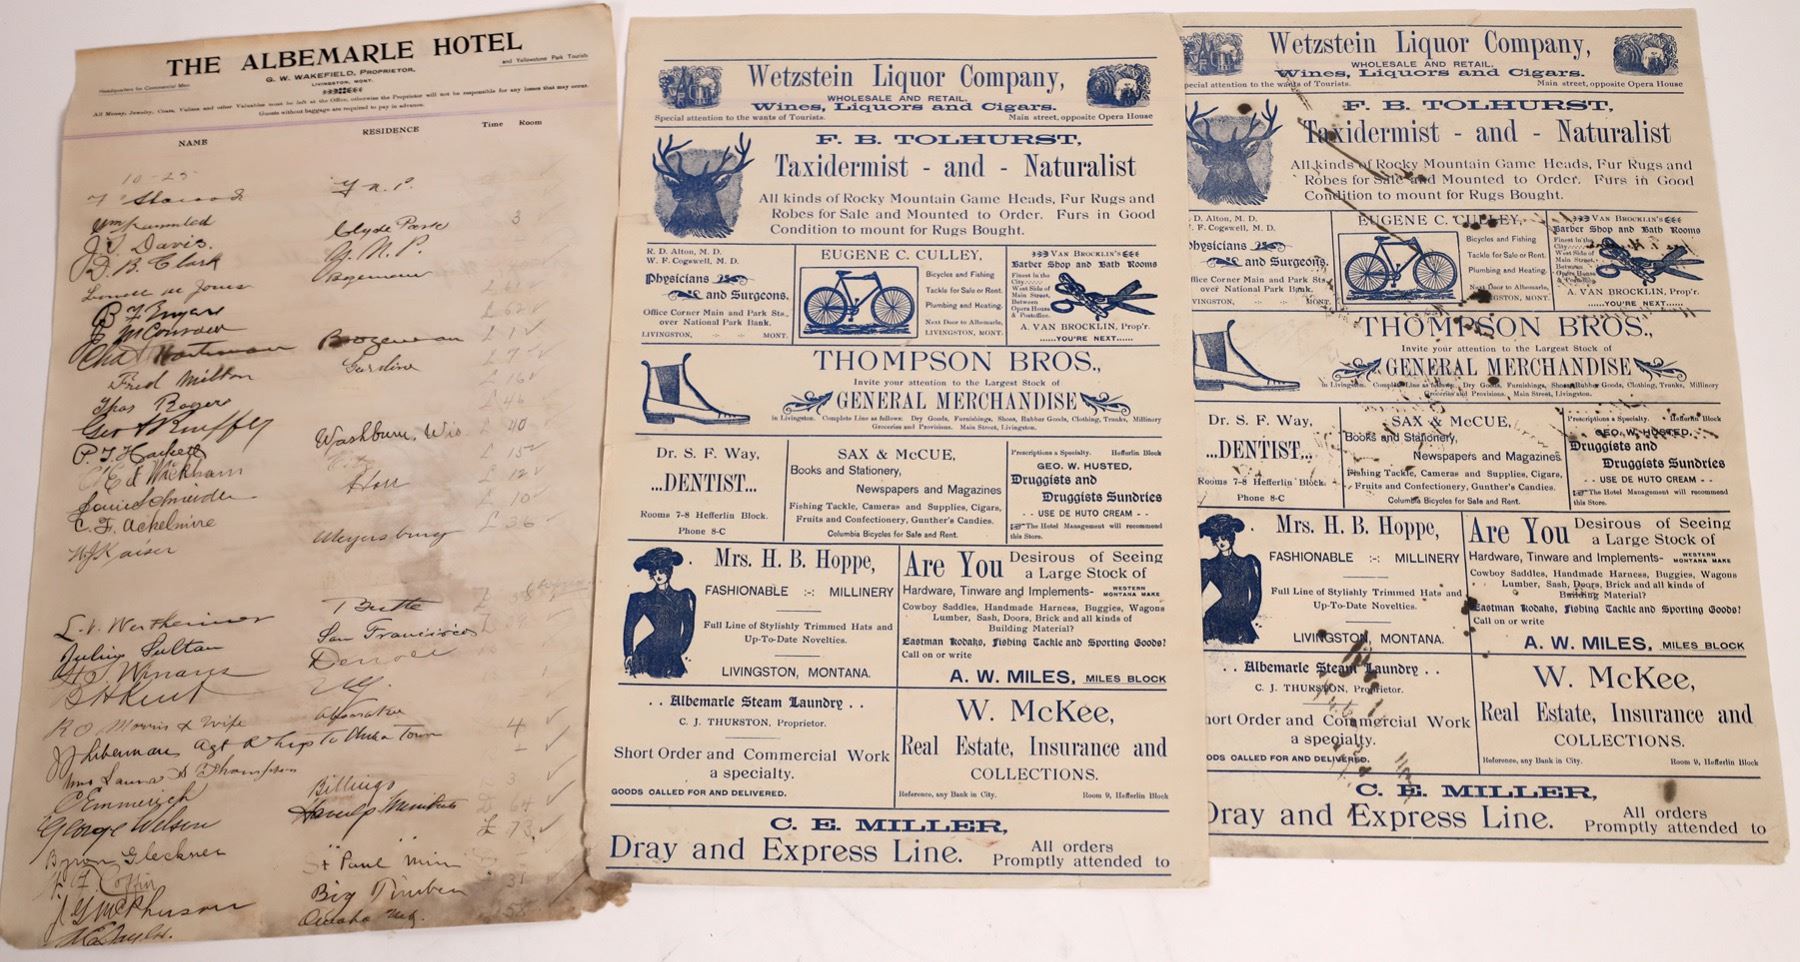 THE ALBEMARLE HOTEL
G. W. WAKEFIELD, PROPRIETOR,
LIVINGSTON, MONT.
Headquarters for Commercial Men
and Yellowstone Park Tourists
All Money, Jewelry, Coats, Valises and other Valuables must be left at the Office, otherwise the Proprietor will not be responsible for any losses that may occur.
Guests without baggage are required to pay in advance.
NAME RESIDENCE Time Room
10-25
J. S. Davis. Clyde Park 3
D. B. Clark
Lowell M Jones
Bozeman
Fred Milton Gardiner
Thos Rogers
Geo A Ruffley
P. J. Hackett Washburn, Wis 40
Ed Wickham
Louie Schneider Horr 12
C. F. Ackelmire 10
W J Kaiser Meyersburg 36
L. V. Wertheimer Butte
Julius Sultan San Francisco
H. J. Winans Denver
R O Morris & Wife
J J Liberman Agt A Trip To China Town 4
Mrs Laura D Thompson
C Emmerisch Billings 3
George Wilson 64
Byron Gleckner 73
F. F. Coffin St Paul Minn
J G McPherson Big Timber 31
Omaha Neb.
Wetzstein Liquor Company,
WHOLESALE AND RETAIL,
Wines, Liquors and Cigars.
Special attention to the wants of Tourists. Main street, opposite Opera House
F. B. TOLHURST,
Taxidermist - and - Naturalist
All kinds of Rocky Mountain Game Heads, Fur Rugs and
Robes for Sale and Mounted to Order. Furs in Good
Condition to mount for Rugs Bought.
R. D. Alton, M. D.
W. F. Cogswell, M. D.
Physicians
and Surgeons.
Office Corner Main and Park Sts.,
over National Park Bank.
LIVINGSTON, -:- -:- MONT.
EUGENE C. CULLEY,
Bicycles and Fishing
Tackle for Sale or Rent.
Plumbing and Heating.
Next Door to Albemarle,
LIVINGSTON, MONT.
VAN BROCKLIN'S
Barber Shop and Bath Rooms
Finest in the
City......
West Side of
Main Street,
Between
Opera House
& Postoffice.
A. VAN BROCKLIN, Prop'r.
......YOU'RE NEXT......
THOMPSON BROS.,
Invite your attention to the Largest Stock of
GENERAL MERCHANDISE
in Livingston. Complete Line as follows: Dry Goods, Furnishings, Shoes, Rubber Goods, Clothing, Trunks, Millinery
Groceries and Provisions. Main Street, Livingston.
Dr. S. F. Way,
...DENTIST...
Rooms 7-8 Hefferlin Block.
Phone 8-C
SAX & McCUE,
Books and Stationery,
Newspapers and Magazines
Fishing Tackle, Cameras and Supplies, Cigars,
Fruits and Confectionery, Gunther's Candies.
Columbia Bicycles for Sale and Rent.
Prescriptions a Specialty. Hefferlin Block
GEO. W. HUSTED,
Druggists and
Druggists Sundries
- - USE DE HUTO CREAM - -
The Hotel Management will recommend
this Store.
Mrs. H. B. Hoppe,
FASHIONABLE :-: MILLINERY
Full Line of Stylishly Trimmed Hats and
Up-To-Date Novelties.
LIVINGSTON, MONTANA.
Are You Desirous of Seeing
a Large Stock of
Hardware, Tinware and Implements- WESTERN
MONTANA MAKE
Cowboy Saddles, Handmade Harness, Buggies, Wagons
Lumber, Sash, Doors, Brick and all kinds of
Building Material?
Eastman Kodaks, Fishing Tackle and Sporting Goods?
Call on or write
A. W. MILES, MILES BLOCK
. . Albemarle Steam Laundry . .
C. J. THURSTON, Proprietor.
Short Order and Commercial Work
a specialty.
GOODS CALLED FOR AND DELIVERED.
W. McKee,
Real Estate, Insurance and
COLLECTIONS.
Reference, any Bank in City. Room 9, Hefferlin Block
C. E. MILLER,
Dray and Express Line. All orders
Promptly attended to
Wetzstein Liquor Company,
WHOLESALE AND RETAIL,
Wines, Liquors and Cigars.
pecial attention to the wants of Tourists. Main street, opposite Opera House
F. B. TOLHURST,
Taxidermist - and - Naturalist
All kinds of Rocky Mountain Game Heads, Fur Rugs and
Robes for Sale and Mounted to Order. Furs in Good
Condition to mount for Rugs Bought.
. D. Alton, M. D.
. F. Cogswell, M. D.
hysicians
and Surgeons.
ffice Corner Main and Park Sts.,
over National Park Bank.
VINGSTON, -:- -:- MONT.
EUGENE C. CULLEY,
Bicycles and Fishing
Tackle for Sale or Rent.
Plumbing and Heating.
Next Door to Albemarle,
LIVINGSTON, MONT.
VAN BROCKLIN'S
Barber Shop and Bath Rooms
Finest in the
City......
West Side of
Main Street,
Between
Opera House
& Postoffice.
A. VAN BROCKLIN, Prop'r.
......YOU'RE NEXT......
THOMPSON BROS.,
Invite your attention to the Largest Stock of
GENERAL MERCHANDISE
in Livingston. Complete Line as follows: Dry Goods, Furnishings, Shoes, Rubber Goods, Clothing, Trunks, Millinery
Groceries and Provisions. Main Street, Livingston.
Dr. S. F. Way,
...DENTIST...
Rooms 7-8 Hefferlin Block.
Phone 8-C
SAX & McCUE,
Books and Stationery,
Newspapers and Magazines
Fishing Tackle, Cameras and Supplies, Cigars,
Fruits and Confectionery, Gunther's Candies.
Columbia Bicycles for Sale and Rent.
Prescriptions a Specialty. Hefferlin Block
GEO. W. HUSTED,
Druggists and
Druggists Sundries
- - USE DE HUTO CREAM - -
The Hotel Management will recommend
this Store.
Mrs. H. B. Hoppe,
FASHIONABLE :-: MILLINERY
Full Line of Stylishly Trimmed Hats and
Up-To-Date Novelties.
LIVINGSTON, MONTANA.
Are You Desirous of Seeing
a Large Stock of
Hardware, Tinware and Implements- WESTERN
MONTANA MAKE
Cowboy Saddles, Handmade Harness, Buggies, Wagons
Lumber, Sash, Doors, Brick and all kinds of
Building Material?
Eastman Kodaks, Fishing Tackle and Sporting Goods?
Call on or write
A. W. MILES, MILES BLOCK
. . Albemarle Steam Laundry . .
C. J. THURSTON, Proprietor.
hort Order and Commercial Work
a specialty.
ODS CALLED FOR AND DELIVERED.
W. McKee,
Real Estate, Insurance and
COLLECTIONS.
Reference, any Bank in City. Room 9, Hefferlin Block
C. E. MILLER,
Dray and Express Line. All orders
Promptly attended to